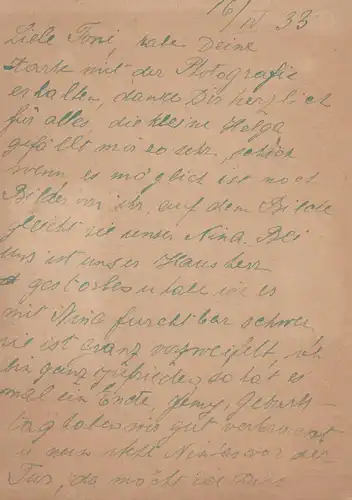 16/IV 33
Liebe Toni, habe Deine
Karte mit der Photografie
erhalten, danke Dir herzlich
für alles, die kleine Helga
gefällt mir so sehr, schick
wenn es möglich ist noch
Bilder von ihr, auf dem Bilde
gleicht sie unser Nina. Bei
uns ist unser Hausherr
gestorben u habe wir es
mit Nina furchtbar schwer,
sie ist ganz verzweifelt, ich
bin ganz zufrieden, so hat es
mal ein Ende. Geburts-
tag haben wir gut verbracht
u nun steht vor der
Tür, da möcht